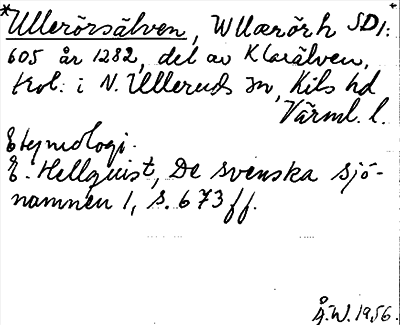 *Ullerörsälven, Wllærörh SD 1:
605 år 1282, del av Klarälven,
trol. i N. Ulleruds sn, Kils hd
Värml. l.
Etymologi.
E. Hellquist, De svenska sjö-
namnen 1, s. 673 ff.
Å.W. 1956.